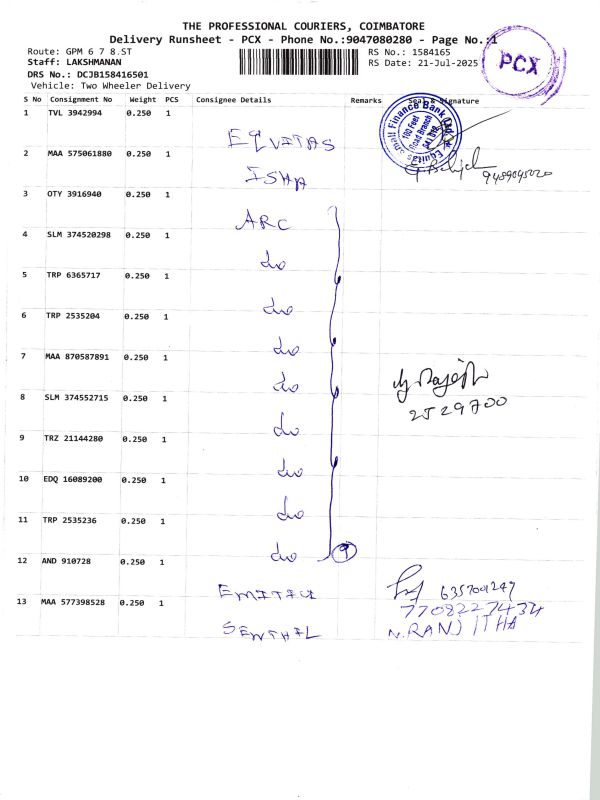 THE PROFESSIONAL COURIERS, COIMBATORE
Delivery Runsheet - PCX - Phone No.:9047080280 - Page No.:1
Route: GPM 6 7 8.ST
RS No.: 1584165
Staff: LAKSHMANAN
RS Date: 21-Jul-2025
DRS No.: DCJB158416501
Vehicle: Two Wheeler Delivery
PCX
S No Consignment No Weight PCS Consignee Details Remarks Seal & Signature
1 TVL 3942994 0.250 1 EQUITAS
Equitas Small Finance Bank Ltd.
100 Feet
Road Branch
2 MAA 575061880 0.250 1 ISHA
3 OTY 3916940 0.250 1 ARC
4 SLM 374520298 0.250 1 do
5 TRP 6365717 0.250 1 do
6 TRP 2535204 0.250 1 do
7 MAA 870587891 0.250 1 do
Rajesh
2529700
8 SLM 374552715 0.250 1 do
9 TRZ 21144280 0.250 1 do
10 EDQ 16089200 0.250 1 do
11 TRP 2535236 0.250 1 do
9
12 AND 910728 0.250 1
7708227434
13 MAA 577398528 0.250 1 SENTHIL
N.RANJITHA